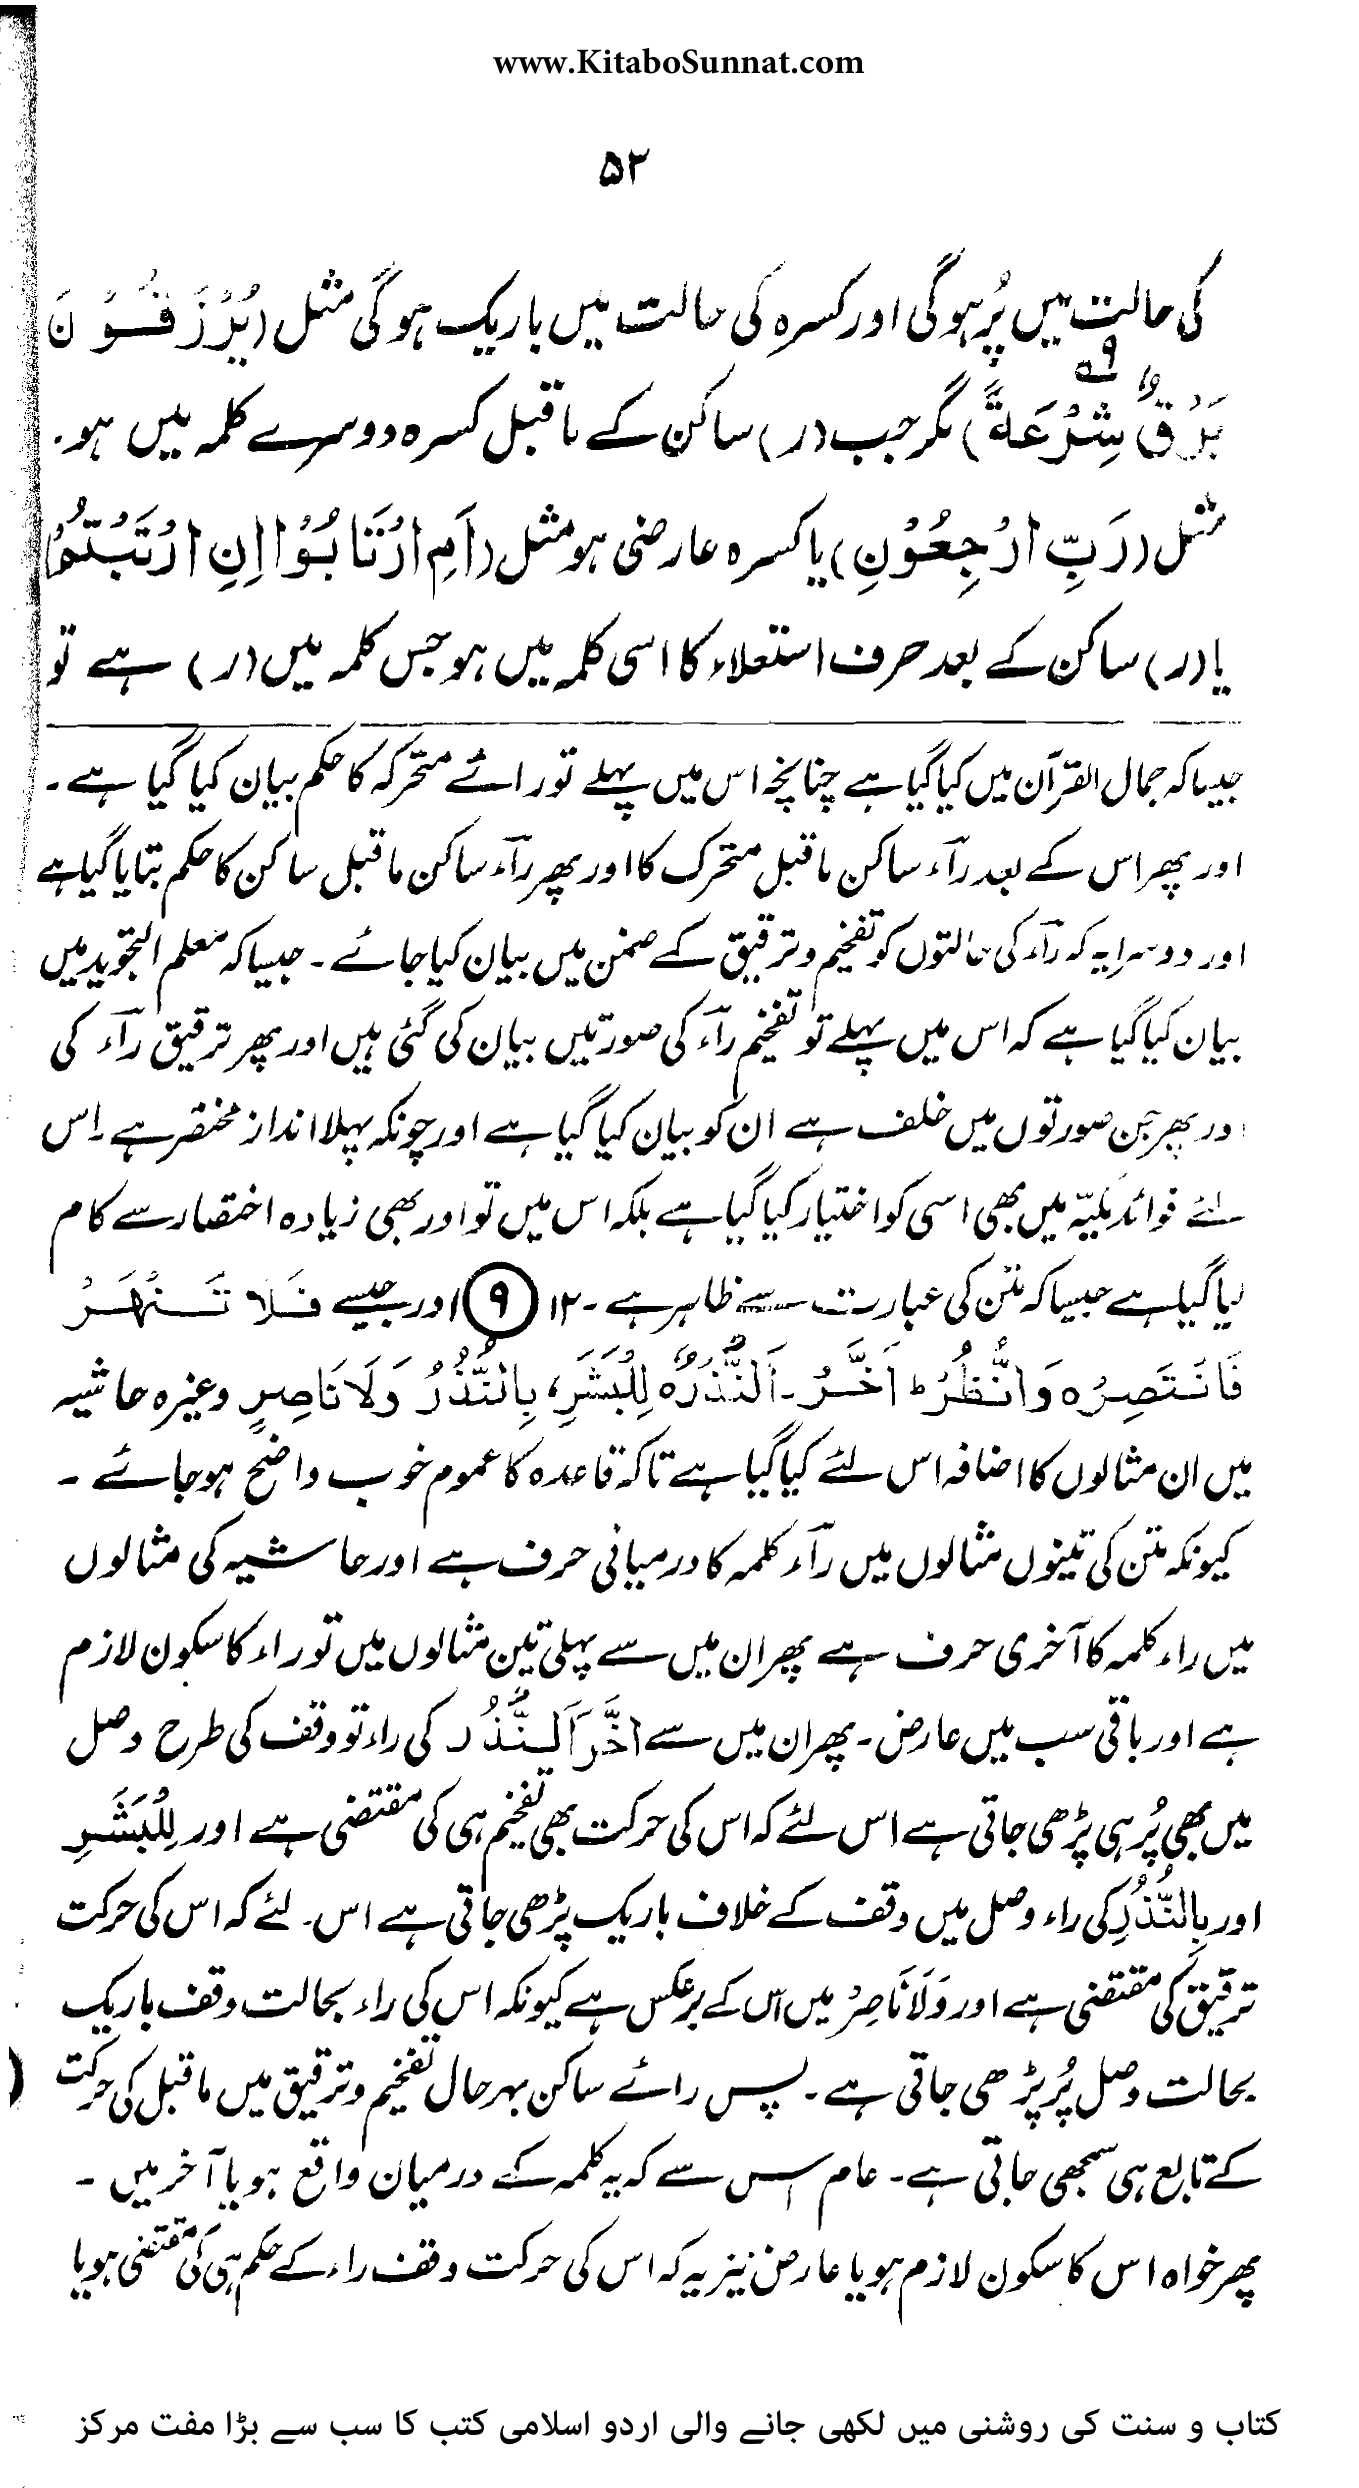 www.KitaboSunnat.com
۵۳
کی حالت میں پُر ہوگی اور کسرہ کی حالت میں باریک ہوگی مثل (یُرْزَقُوْنَ
بَرْقٌ شِرْعَةً) ۹ مگر جب (ر) ساکن کے ماقبل کسرہ دوسرے کلمہ میں ہو۔
مثل (رَبِّ ارْجِعُوْنِ) یا کسرہ عارضی ہو مثل (اَمِ ارْتَابُوْا اِنِ ارْتَبْتُمْ)
یا (ر) ساکن کے بعد حرف استعلاء کا اسی کلمہ میں ہو جس کلمہ میں (ر) ہے تو
جیسا کہ جمال القرآن میں کیا گیا ہے چنانچہ اس میں پہلے تو رائے متحرکہ کا حکم بیان کیا گیا ہے۔
اور پھر اس کے بعد رآء ساکن ماقبل متحرک کا اور پھر رآء ساکن ماقبل ساکن کا حکم بتایا گیا ہے
اور دوسرا یہ کہ رآء کی حالتوں کو تفخیم و ترقیق کے ضمن میں بیان کیا جائے۔ جیسا کہ معلم التجوید میں
بیان کیا گیا ہے کہ اس میں پہلے تو تفخیم رآء کی صورتیں بیان کی گئی ہیں اور پھر ترقیق رآء کی
اور پھر جن صورتوں میں خلف ہے ان کو بیان کیا گیا ہے اور چونکہ پہلا انداز مختصر ہے۔ اس
لئے فوائد مکیّہ میں بھی اسی کو اختیار کیا گیا ہے بلکہ اس میں تو اور بھی زیادہ اختصار سے کام
لیا گیا ہے جیسا کہ متن کی عبارت سے ظاہر ہے۔ ۱۲ (۹) اور جیسے فَلَا تَنْهَرْ
فَانْتَصِرْ ہ وَانْظُرْ ط اَخَّرَ۔ اَلنُّذُرُ ہ لِلْبَشَرِ، بِالنُّذُرِ وَلَا نَاصِرٍ وغیرہ حاشیہ
میں ان مثالوں کا اضافہ اس لئے کیا گیا ہے تاکہ قاعدہ کا عموم خوب واضح ہو جائے۔
کیونکہ متن کی تینوں مثالوں میں رآء کلمہ کا درمیانی حرف ہے اور حاشیہ کی مثالوں
میں راء کلمہ کا آخری حرف ہے پھر ان میں سے پہلی تین مثالوں میں تو راء کا سکون لازم
ہے اور باقی سب میں عارض۔ پھر ان میں سے اَخَّرَ اَلنُّذُر کی راء تو وقف کی طرح وصل
میں بھی پُر ہی پڑھی جاتی ہے اس لئے کہ اس کی حرکت بھی تفخیم ہی کی مقتضی ہے اور لِلْبَشَرِ
اور بِالنُّذُرِ کی راء وصل میں وقف کے خلاف باریک پڑھی جاتی ہے اس۔ لئے کہ اس کی حرکت
ترقیق کی مقتضی ہے اور وَلَا نَاصِرْ میں اس کے برعکس ہے کیونکہ اس کی راء بحالت وقف باریک
بحالت وصل پُر پڑھی جاتی ہے۔ پس رائے ساکن بہرحال تفخیم و ترقیق میں ماقبل کی حرکت
کے تابع ہی سمجھی جاتی ہے۔ عام اس سے کہ یہ کلمہ کے درمیان واقع ہو یا آخر میں۔
پھر خواہ اس کا سکون لازم ہو یا عارض نیز یہ کہ اس کی حرکت وقف راء کے حکم ہی کی مقتضی ہو یا
کتاب و سنت کی روشنی میں لکھی جانے والی اردو اسلامی کتب کا سب سے بڑا مفت مرکز